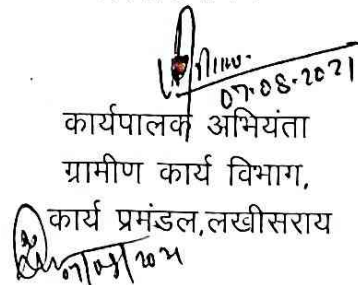 07.08.2021
कार्यपालक अभियंता
ग्रामीण कार्य विभाग,
कार्य प्रमंडल,लखीसराय